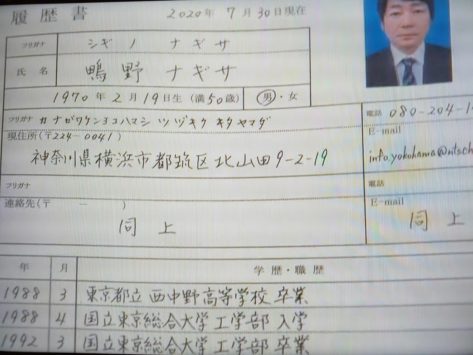 履歴書 2020年 7月30日現在
フリガナ シギノ ナギサ
氏名 鴫野 ナギサ
1970年2月19日生(満50歳) 男・女
フリガナ カナガワケンヨコハマシ ツヅキク キタヤマダ
電話 080-204-1
現住所(〒224-0041)
E-mail
神奈川県横浜市都筑区北山田9-2-19
info.yokohama@nitsch
フリガナ
電話
連絡先(〒 - )
E-mail
同上
同上
年 月 学歴・職歴
1988 3 東京都立 西中野高等学校 卒業
1988 4 国立東京総合大学 工学部 入学
1992 3 国立東京総合大学 工学部 卒業